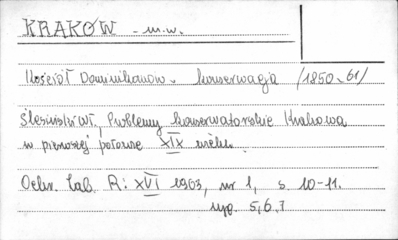 KRAKÓW - m.w.
Kościół Dominikanów - konserwacja (1850-61)
Ślesiński Wł. Problemy konserwatorskie Krakowa
w pierwszej połowie XIX wieku.
Ochr. Zab. R: XVI 1963, nr 1, s 10-11.
ryc. 5,6,7